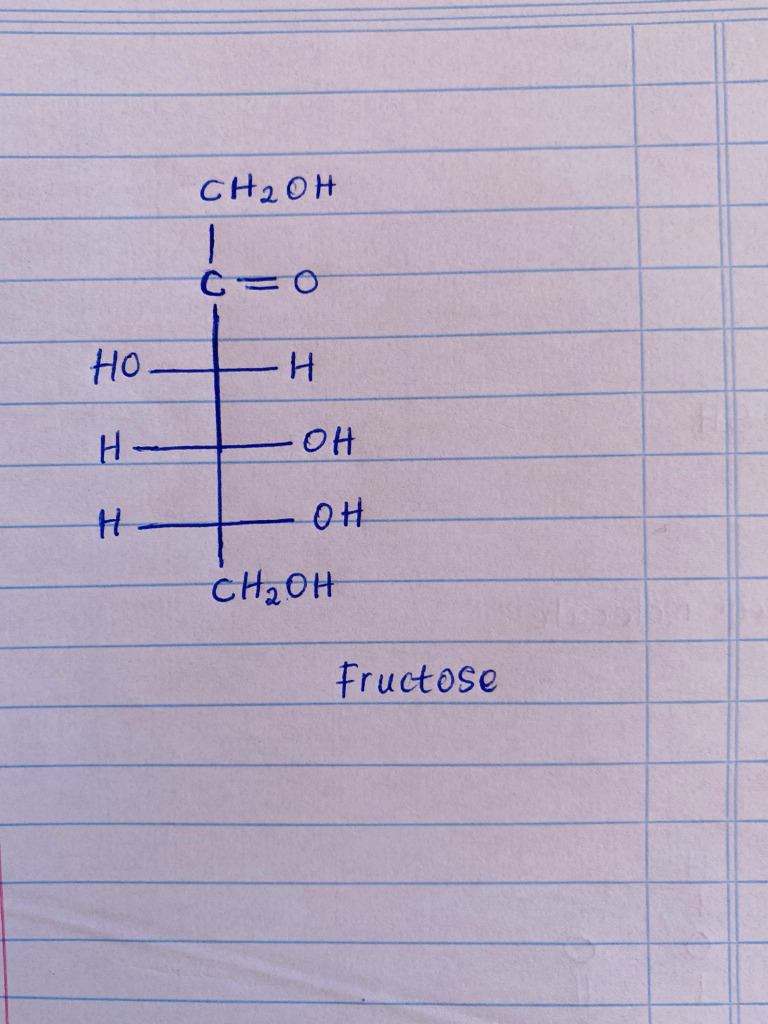 CH2OH
C=O
HO H
H OH
H OH
CH2OH
Fructose